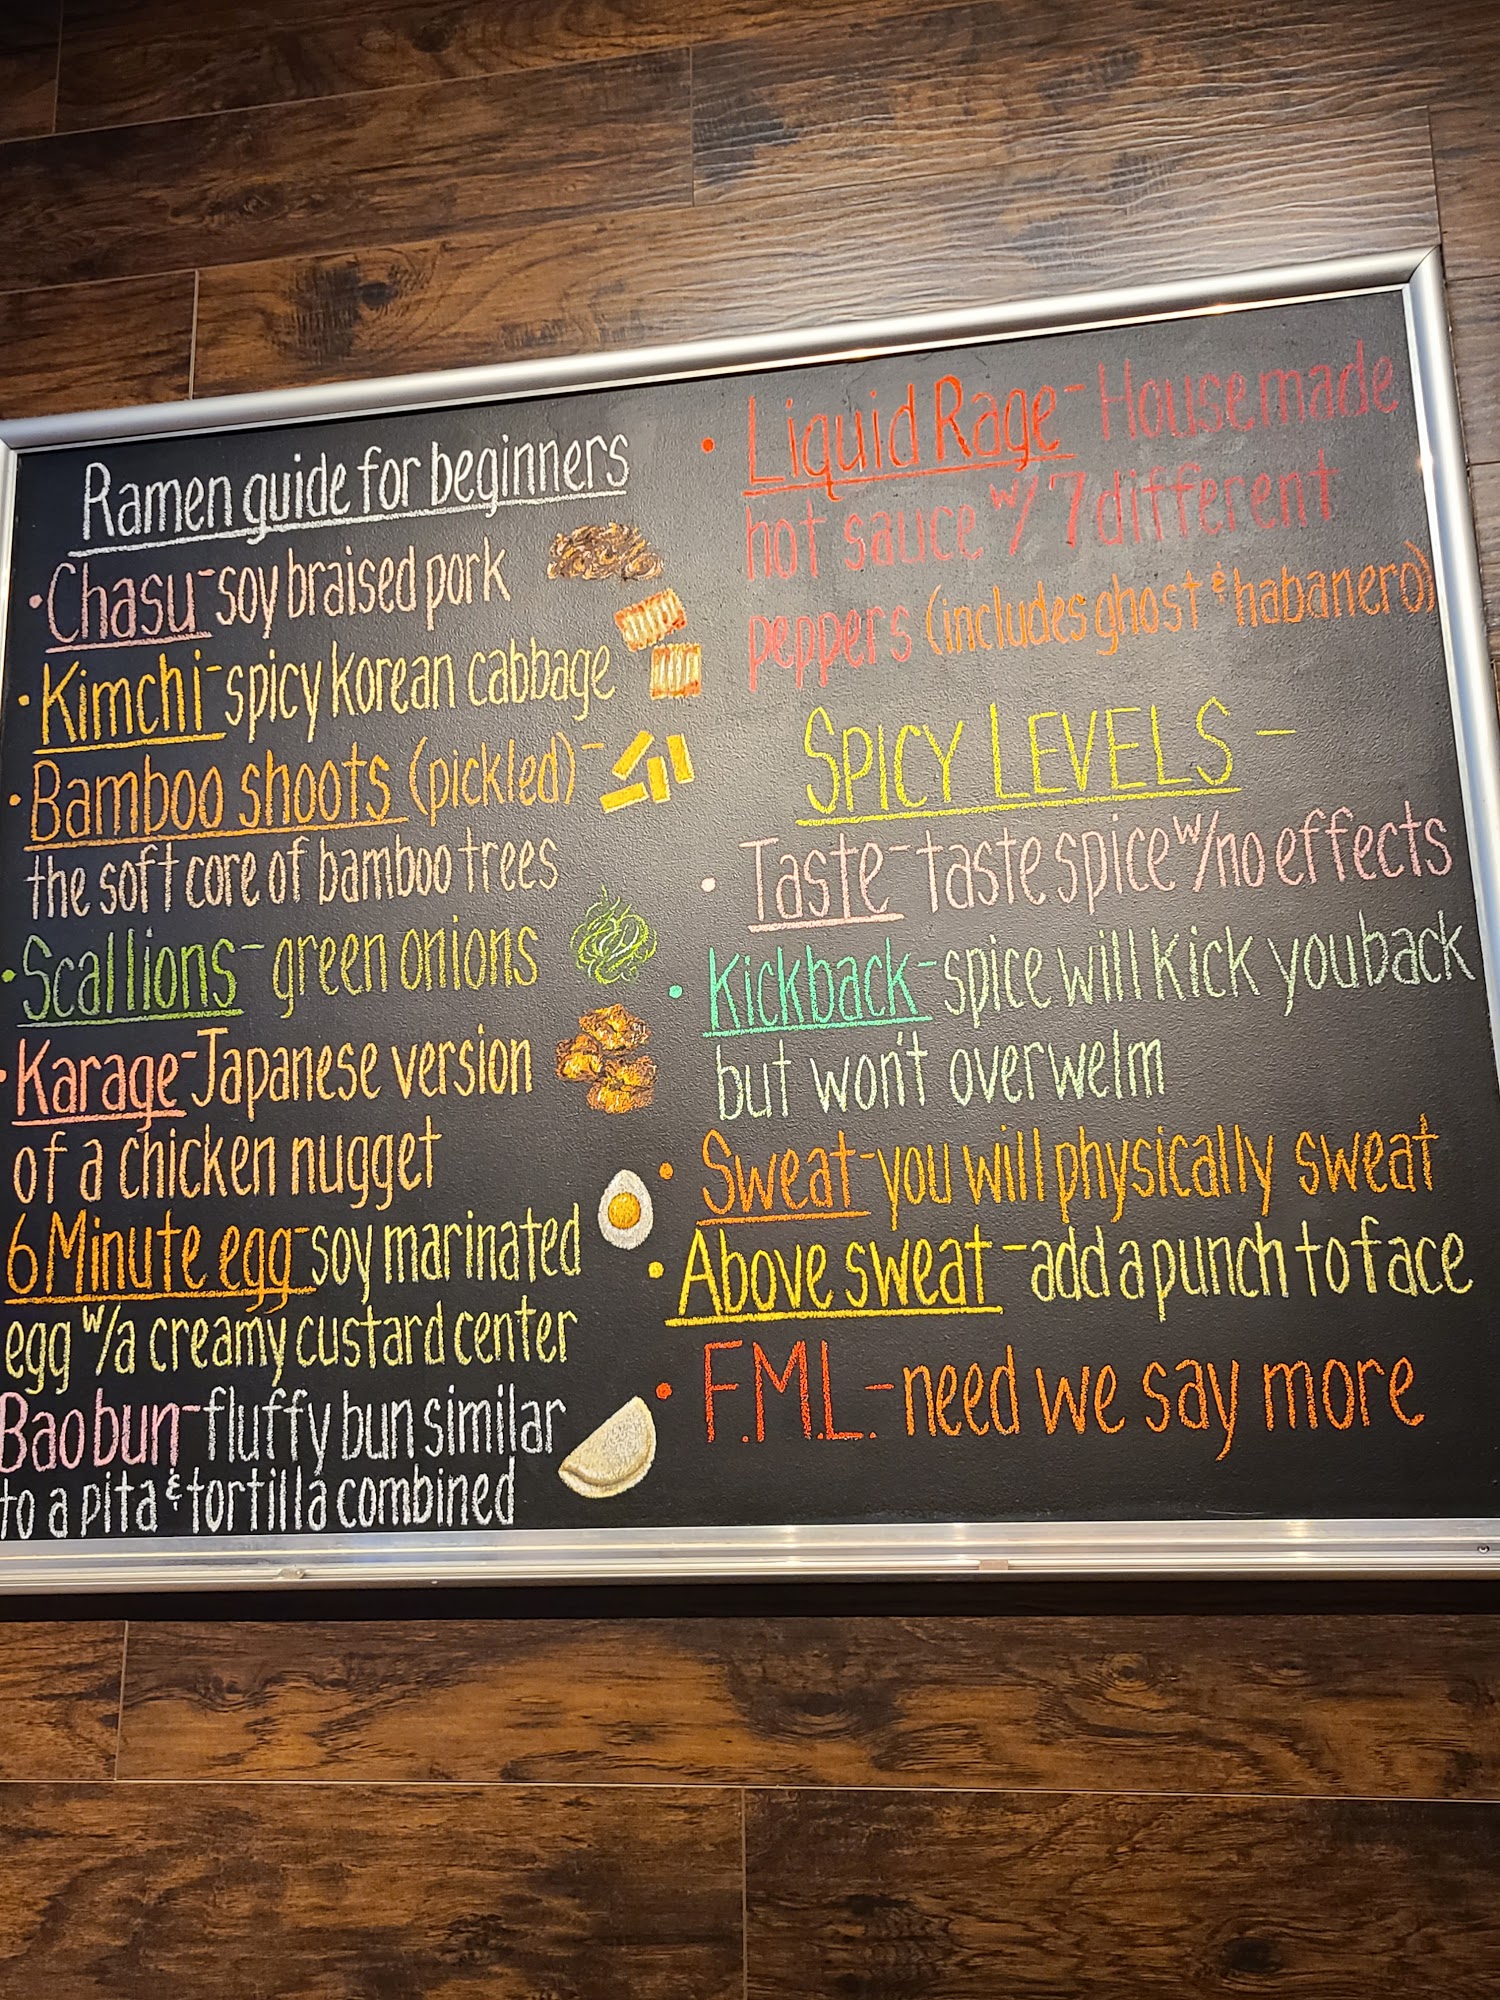 Ramen guide for beginners
• Chasu - soy braised pork
• Kimchi - spicy Korean cabbage
• Bamboo shoots (pickled) -
the soft core of bamboo trees
• Scallions - green onions
• Karage - Japanese version
of a chicken nugget
6 Minute egg - soy marinated
egg w/a creamy custard center
Bao bun - fluffy bun similar
to a pita & tortilla combined
• Liquid Rage - Housemade
hot sauce w/ 7 different
peppers (includes ghost & habanero)
SPICY LEVELS -
• Taste - taste spice w/no effects
• Kickback - spice will kick you back
but won't overwelm
• Sweat - you will physically sweat
• Above sweat - add a punch to face
• F.M.L. - need we say more